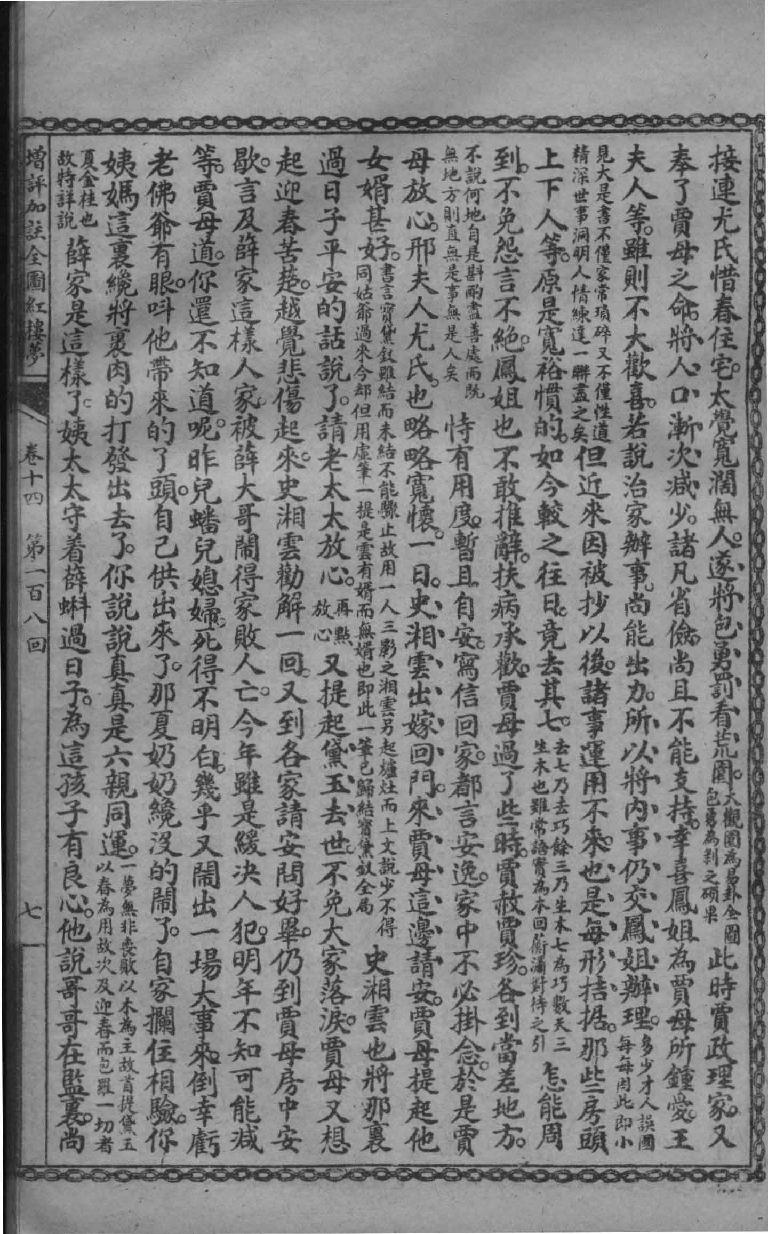 接連尤氏惜春住宅。太覺寬濶無人。遂將包勇罰看荒園。大觀園為易卦全圖包勇為剝之碩果此時賈政理家。又
奉了賈母之命。將人口漸次減少。諸凡省儉。尚且不能支持。幸喜鳳姐為賈母所鍾愛。王
夫人等。雖則不大歡喜。若說治家辦事。尚能出力。所以將內事仍交鳳姐辦理。多少才人誤國每每因此即小
見大是書不僅家常瑣碎又不僅性道精深世事洞明人情練達一聯盡之矣但近來因被抄以後。諸事運用不來。也是每形拮据。那些房頭
上下人等。原是寬裕慣的。如今較之往日。竟去其七。去七乃去巧餘三乃生木七為巧數天三生木也雖常語實為本回蘅瀟對待之引怎能周
到。不免怨言不絕。鳳姐也不敢推辭。扶病承歡。賈母過了些時。賈赦賈珍。各到當差地方。
不說何地自是斟酌盡善處而既無地方則直無是事無是人矣恃有用度。暫且自安。寫信回家。都言安逸。家中不必掛念。於是賈
母放心。邢夫人尤氏。也略略寬懷。一日。史湘雲出嫁回門。來賈母這邊請安。賈母提起他
女婿甚好。書言寶黛釵雖結而未結不能驟止故用一人三影之湘雲另起爐灶而上文說少不得同姑爺過來今却但用虛筆一提是雲有婿而無婿也即此一筆已歸結寶黛釵全局史湘雲也將那裏
過日子平安的話說了。請老太太放心。再點放心又提起黛玉去世。不免大家落淚。賈母又想
起迎春苦楚。越覺悲傷起來。史湘雲勸解一回。又到各家請安問好畢。仍到賈母房中安
歇。言及薛家這樣人家。被薛大哥鬧得家敗人亡。今年雖是緩決人犯。明年不知可能減
等。賈母道。你還不知道呢。昨兒蟠兒媳婦。死得不明白。幾乎又鬧出一場大事來。倒幸虧
老佛爺有眼。呌他帶來的丫頭。自己供出來了。那夏奶奶纔沒的鬧了。自家攔住相驗。你
姨媽這裏纔將裏肉的打發出去了。你說說真真是六親同運。一夢無非喪敗以木為主故首提黛玉以春為用故次及迎春而包羅一切者
夏金桂也故特詳說薛家是這樣了。姨太太守着薛蝌過日子。為這孩子有良心。他說哥哥在監裏。尚
增評加註全圖紅樓夢
卷十四　第一百八回
七